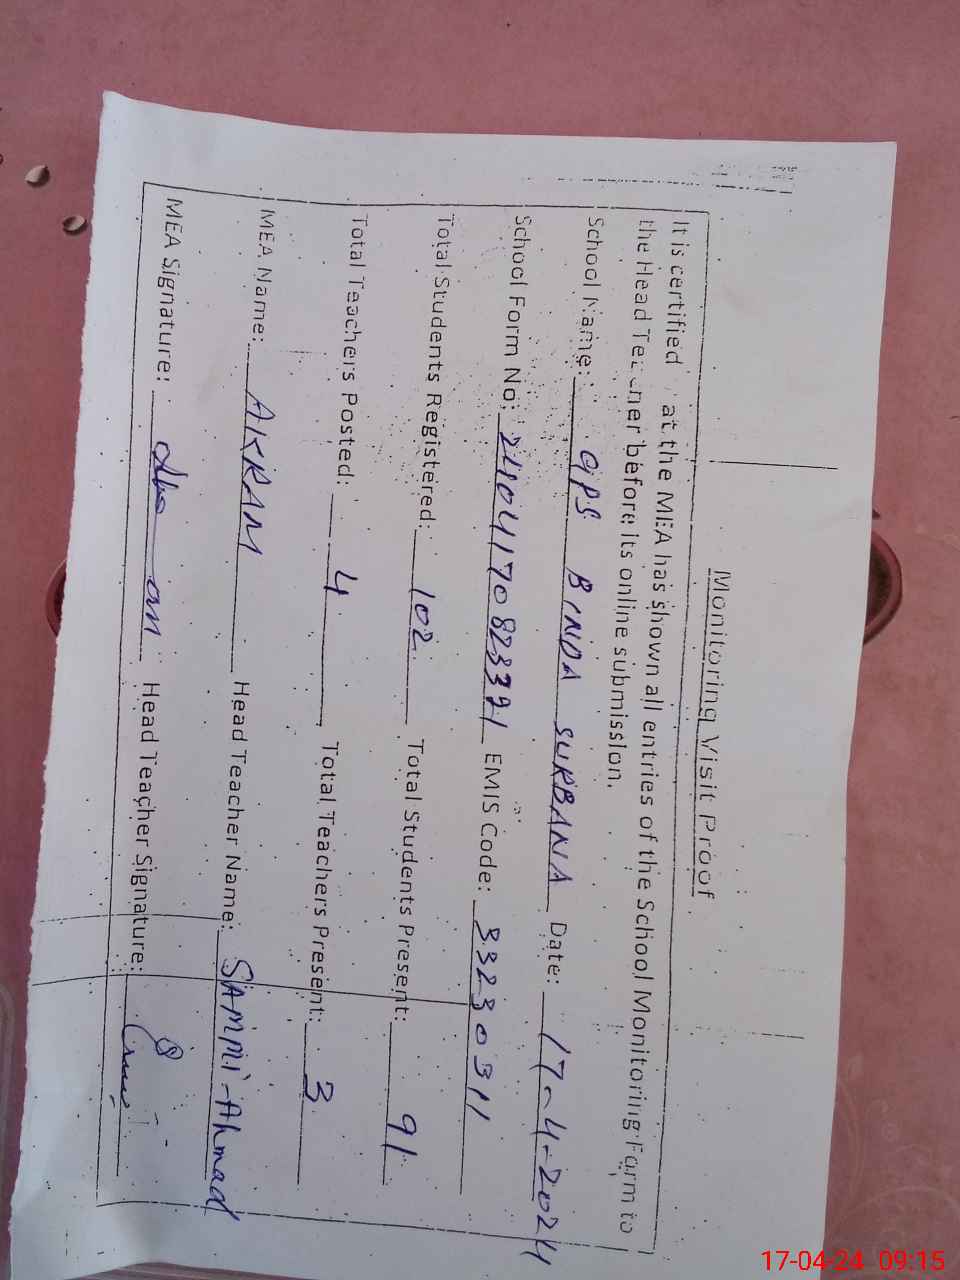 Monitoring Visit Proof
It is certified at the MEA has shown all entries of the School Monitoring Form to
the Head Teacher before its online submission.
School Name: GPS BINDA SURBANA Date: 17-4-2024
School Form No: 240417082339 1 EMIS Code: 33230311
Total Students Registered: 102 Total Students Present: 91
Total Teachers Posted: 4 Total Teachers Present: 3
MEA Name: AKRAM Head Teacher Name: SAMMI-Ahmad
MEA Signature: Head Teacher Signature:
17-04-24 09:15